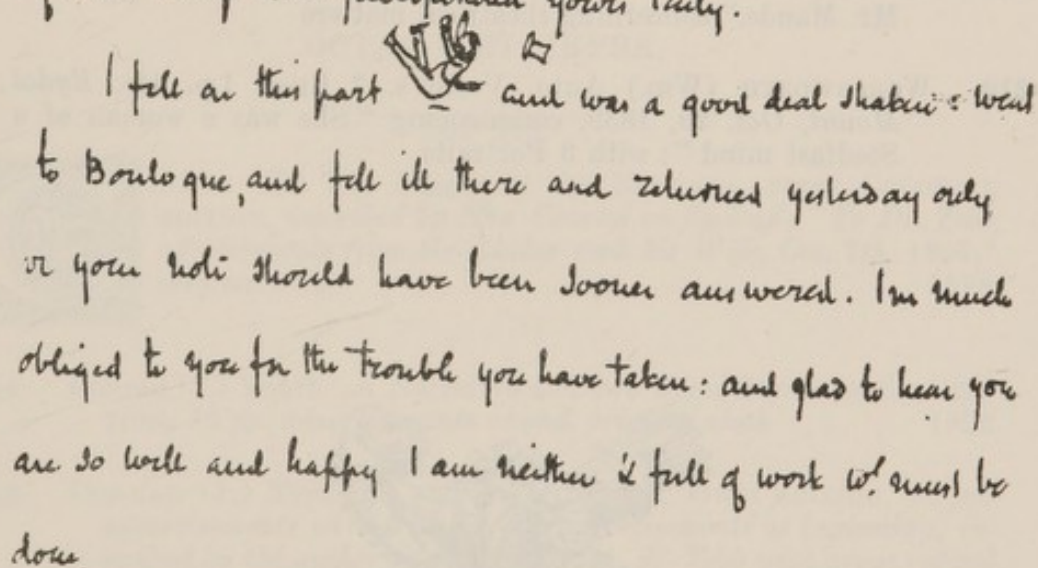 yours truly.
I fell on this part and was a good deal shaken: went
to Boulogue, and fell ill there and returned yesterday only
or your note should have been sooner answered. Im much
obliged to you for the trouble you have taken: and glad to hear you
are so well and happy I am neither & full of work wh. must be
done